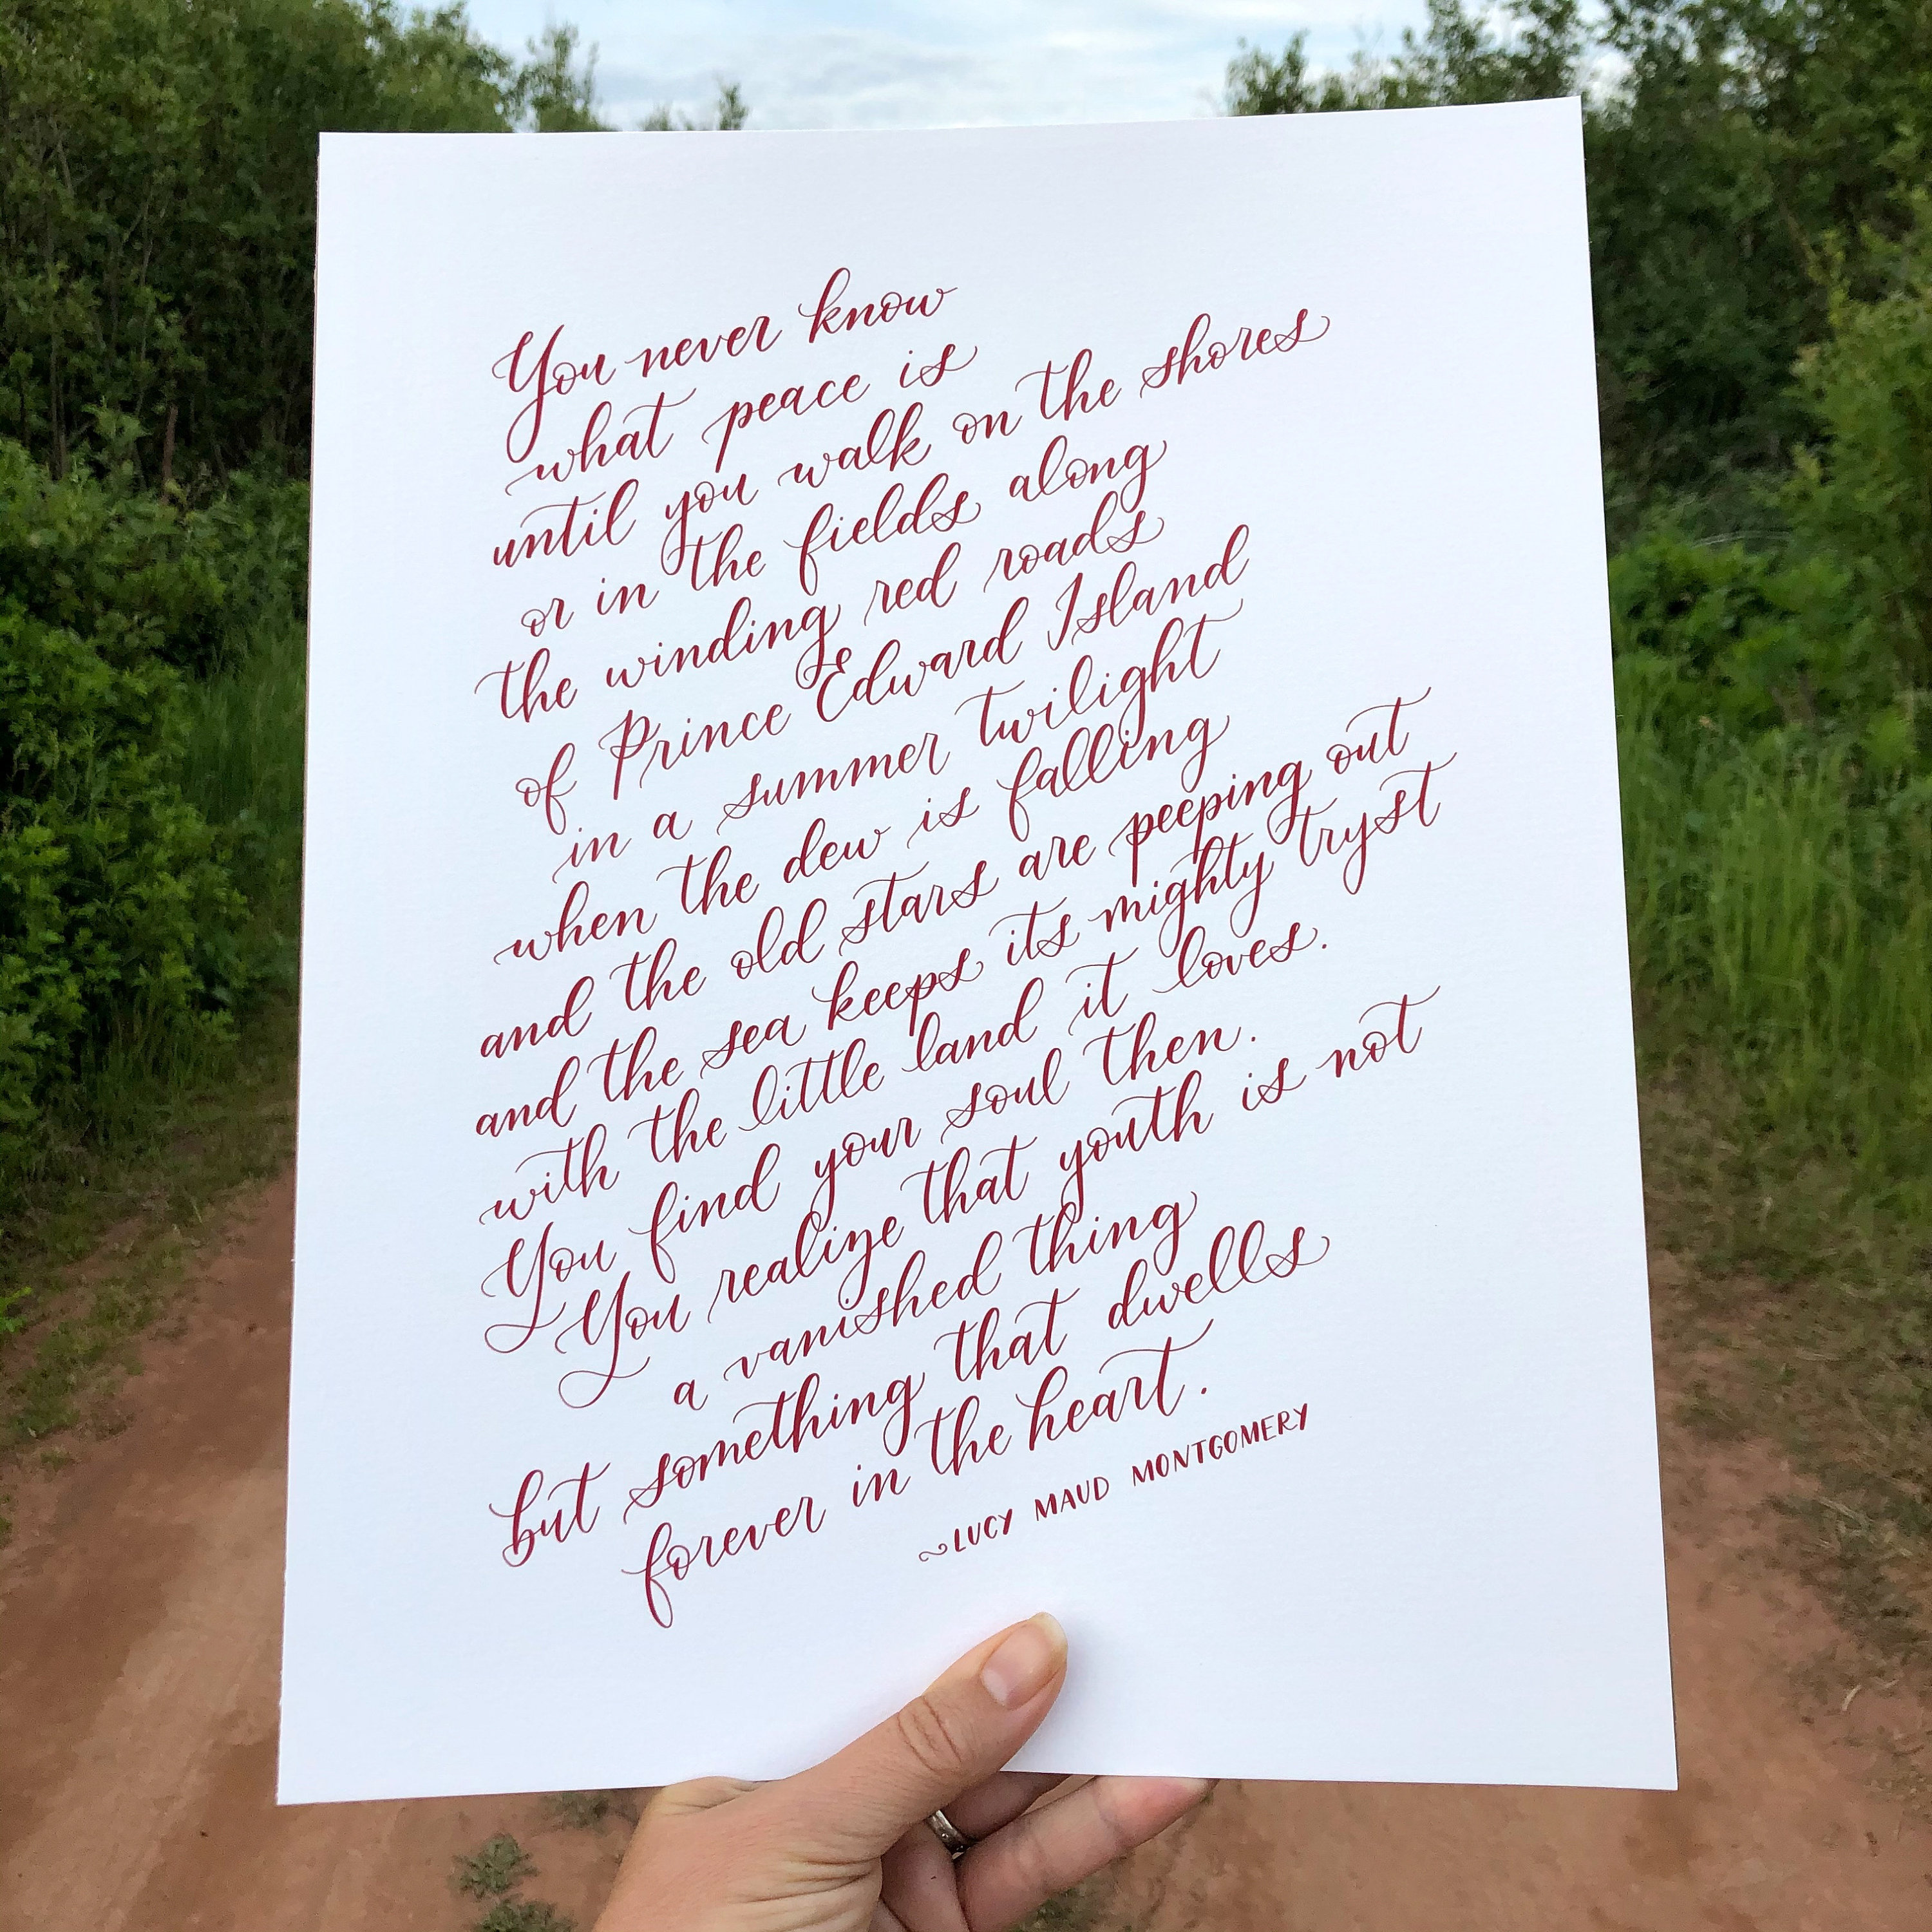 You never know
what peace is
until you walk on the shores
or in the fields along
the winding red roads
of Prince Edward Island
in a summer twilight
when the dew is falling
and the old stars are peeping out
and the sea keeps its mighty tryst
with the little land it loves.
You find your soul then.
You realize that youth is not
a vanished thing
but something that dwells
forever in the heart.
~LUCY MAUD MONTGOMERY